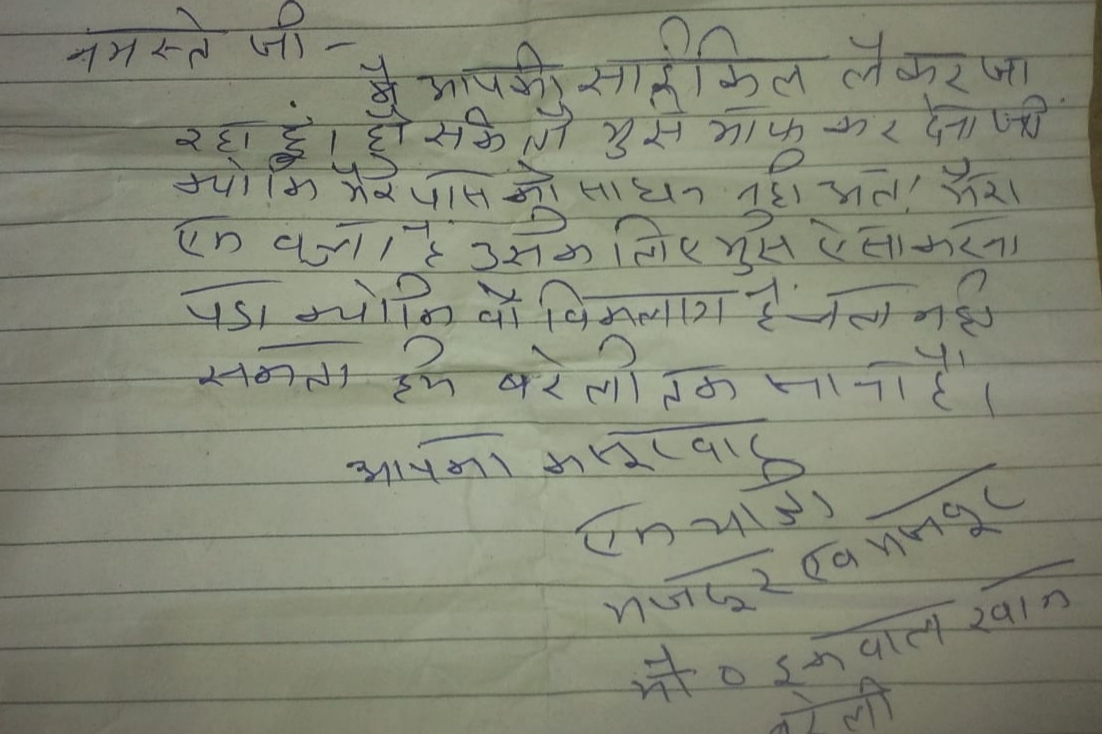 नमस्ते जी -
मै आपकी साईकिल लेकर जा
रहा हूं। हो सके तो मुझे माफ कर देना जी
क्योकि मेरे पास को साधन नही अतः मेरा
एक बच्चा है उसके लिए मुझे ऐसा करना
पडा क्योकि वो विकलांग है चल नही
सकता हमे बरेली तक जाना है।
आपका कसूरवार
एक यात्री
मजदूर एवं मजबूर
मो० इकबाल खान
बरेली